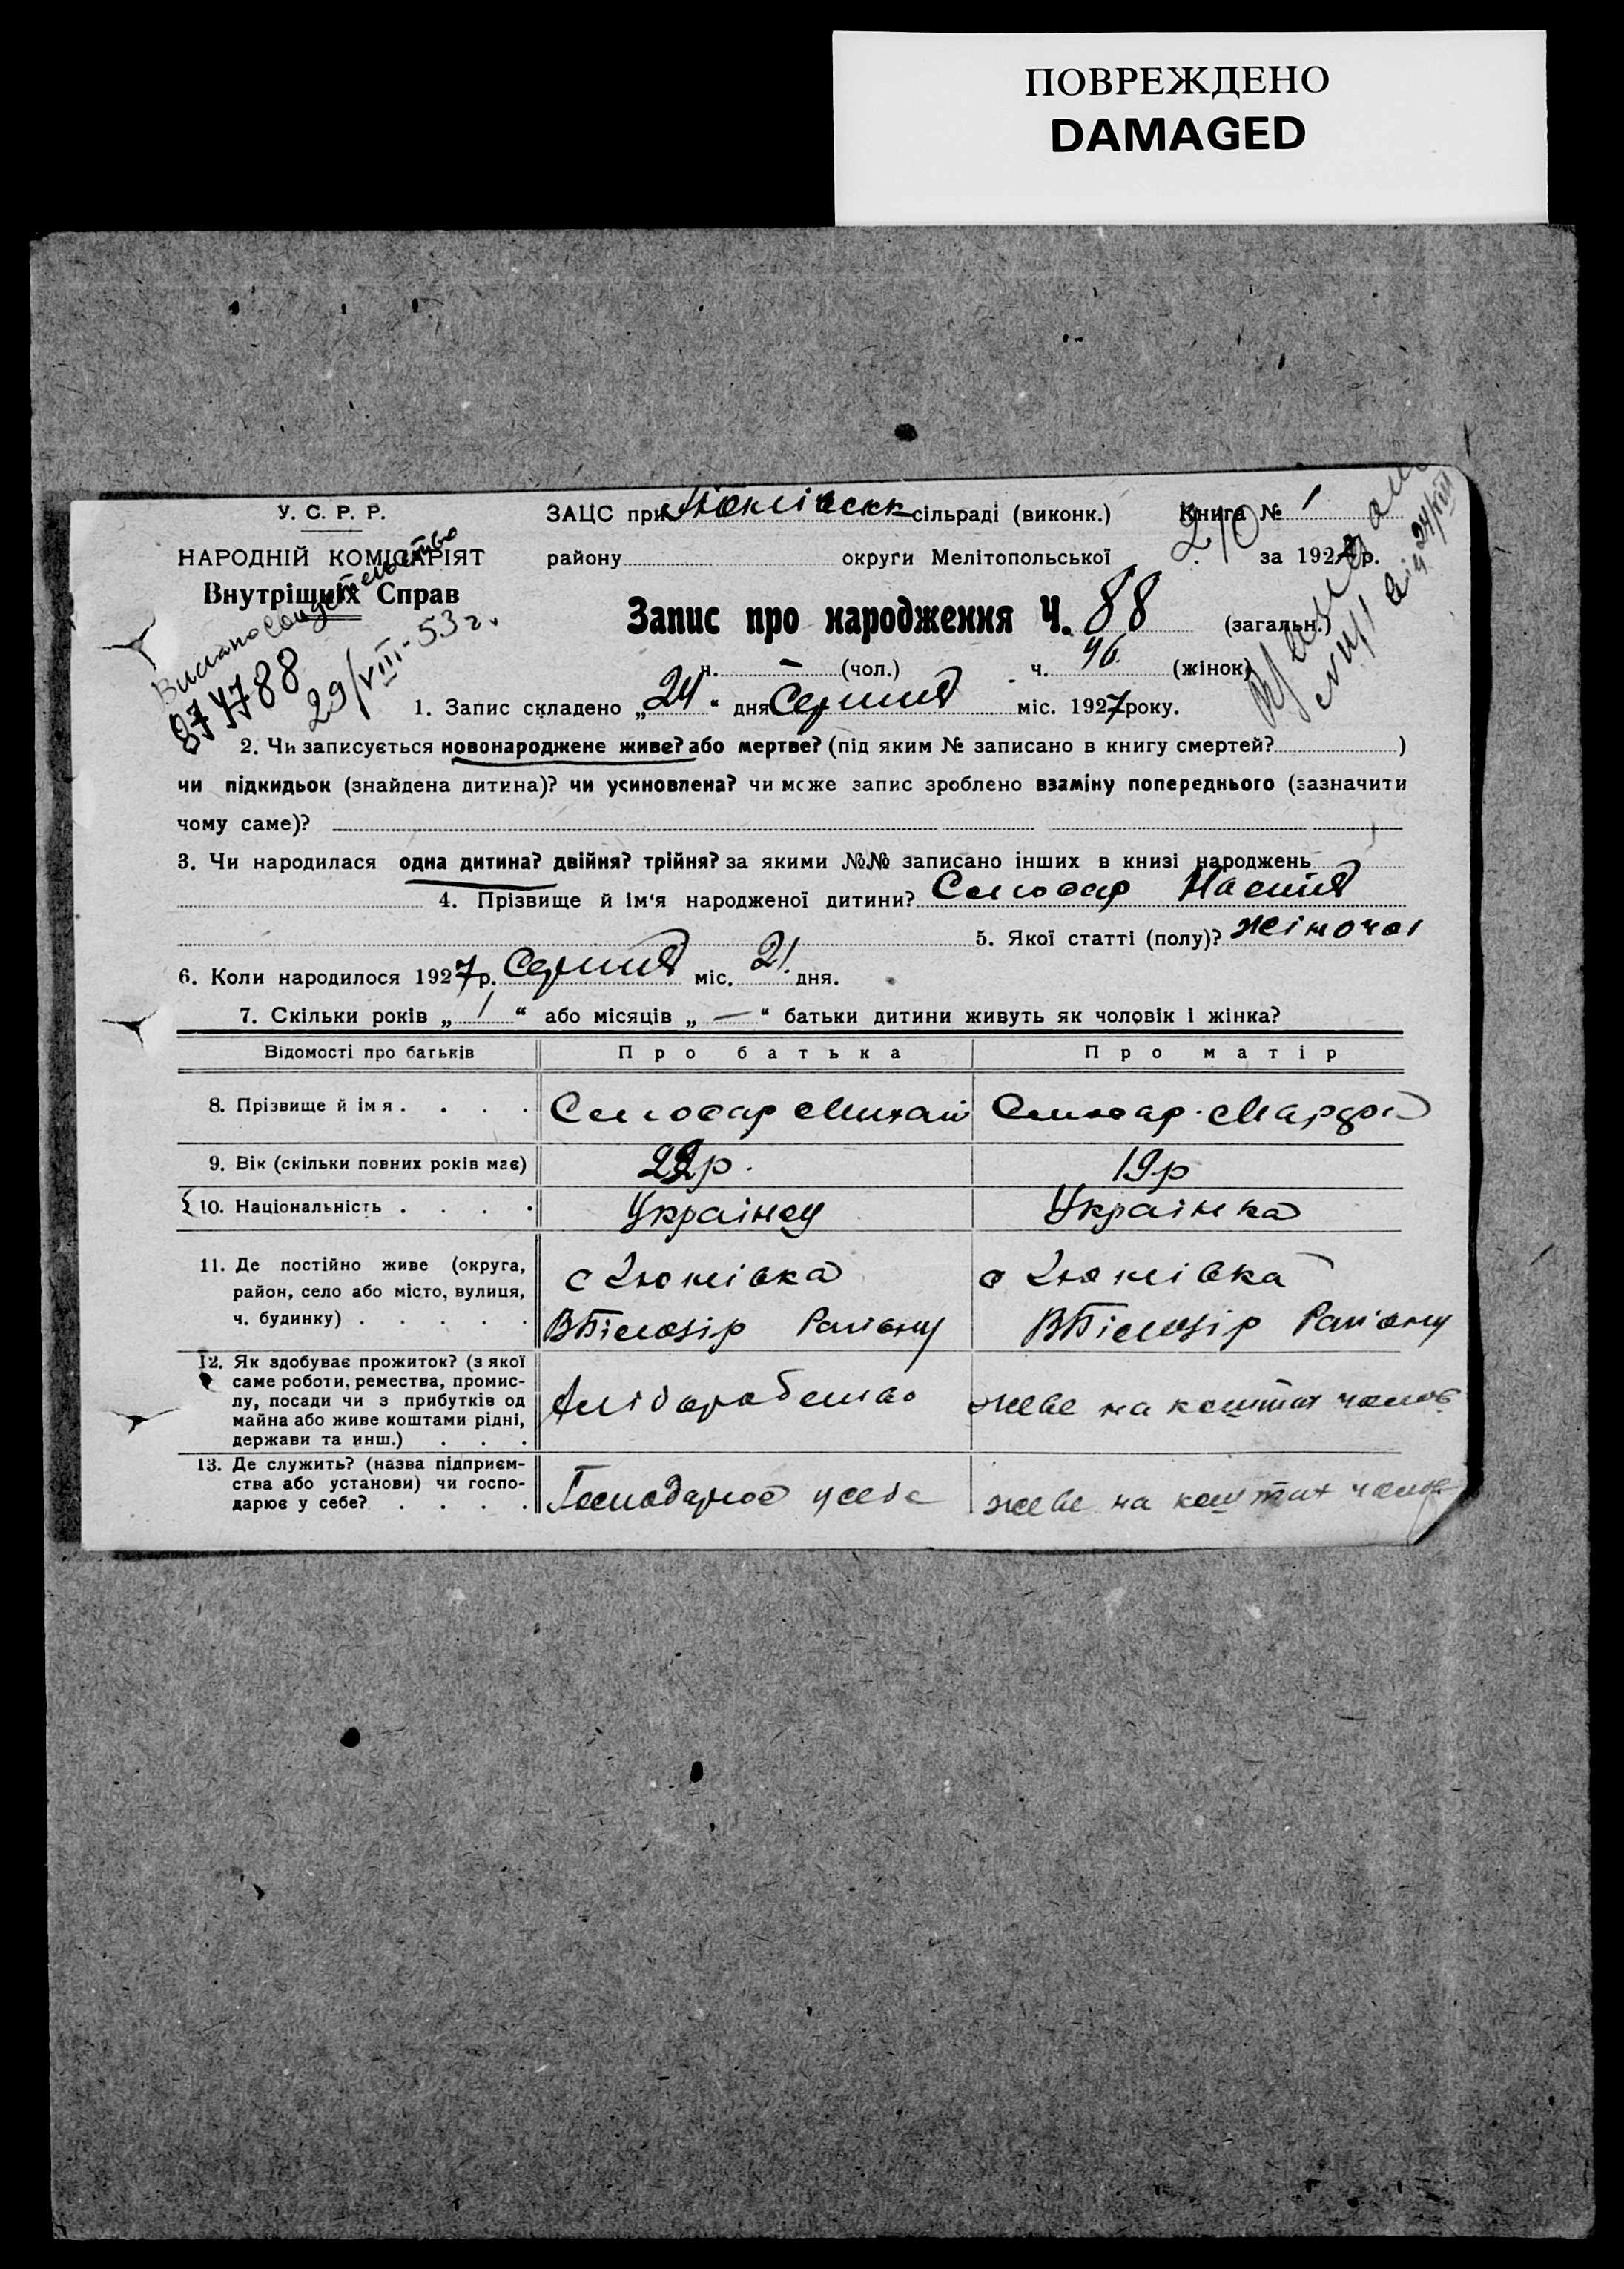 ПОВРЕЖДЕНО
DAMAGED
У. С. Р. Р.
НАРОДНІЙ КОМІСАРІЯТ
Внутрішніх Справ
ЗАЦС при сільраді (виконк.)
Книга № 1
району округи Мелітопольської
210
за 1927 р.
Запис про народження Ч. 88 (загальн.)
ч. — (чол.) ч. 46. (жінок)
874788
29/VIII-53 г.
1. Запис складено „24“ дня Серпня міс. 1927 року.
2. Чи записується новонароджене живе? або мертве? (під яким № записано в книгу смертей? )
чи підкидьок (знайдена дитина)? чи усиновлена? чи може запис зроблено взаміну попереднього (зазначити
чому саме)?
3. Чи народилася одна дитина? двійня? трійня? за якими №№ записано інших в книзі народжень
4. Прізвище й ім‘я народженої дитини? Слюсар Настя
5. Якої статті (полу)? жіночої
6. Коли народилося 1927 р. Серпня міс. 21. дня.
7. Скільки років „ 1 “ або місяців „ — “ батьки дитини живуть як чоловік і жінка?
Відомості про батьків Про батька Про матір
8. Прізвище й імя . . . . Слюсар Михай Слюсар Марфа
9. Вік (скільки повних років має) р. 19р
10. Національність . . . . Українец Українка
11. Де постійно живе (округа,
район, село або місто, вулиця,
ч. будинку) . . . . .
с
ВБілозір Району
с
ВБілозір Району
12. Як здобуває прожиток? (з якої
саме роботи, ремества, промис-
лу, посади чи з прибутків од
майна або живе коштами рідні,
держави та инш.) . . .
Хліборобство
живе на коштах чолов
13. Де служить? (назва підприєм-
ства або установи) чи госпо-
дарює у себе? . . . .
Господарює у себе
живе на коштах чолов